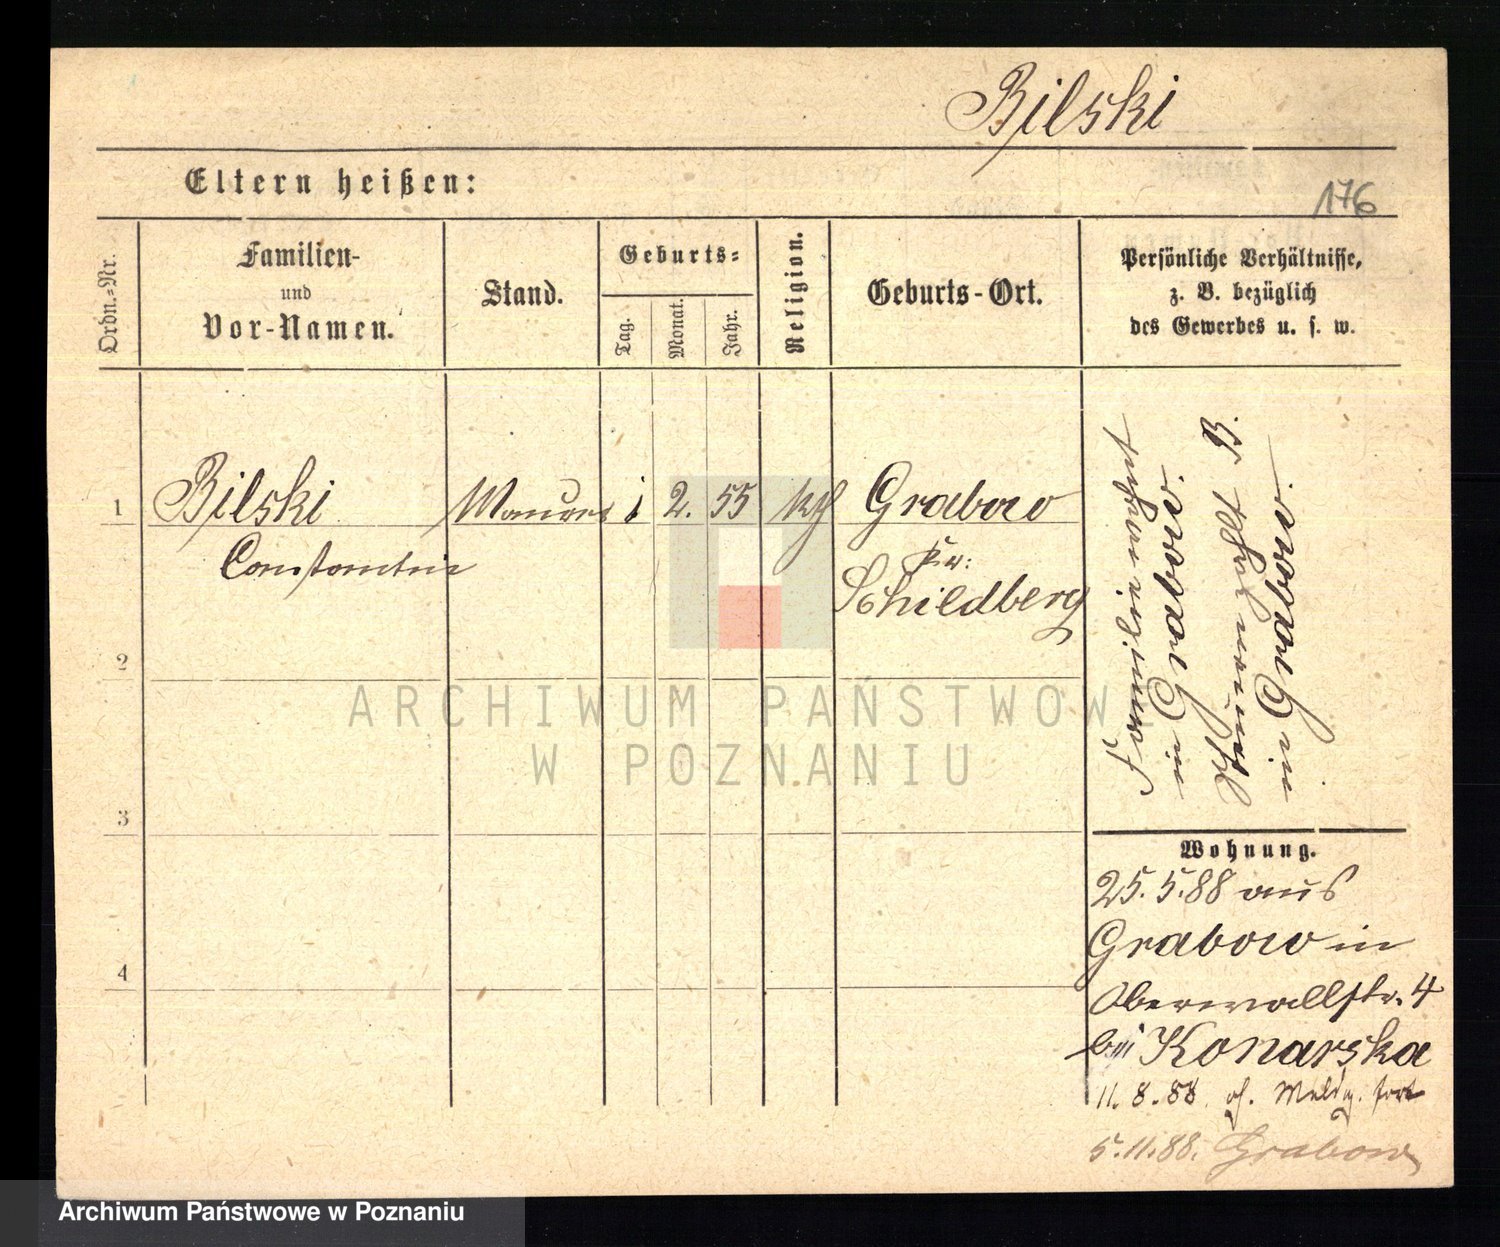 Bilski
Eltern heißen:
176
Ordn.-Nr.
Familien-
und
Vor-Namen.
Stand.
Geburts-
Tag.
Monat.
Jahr.
Religion.
Geburts-Ort.
Persönliche Verhältnisse,
z. B. bezüglich
des Gewerbes u. s. w.
1
Bilski
Constantin
Maurer
1
2.
55
kth
Grabow
Kr:
Schildberg
Familie wohnt
in Grabow.
B.
in Grabow.
2
3
4
Wohnung.
25.5.88 aus
Grabow in
Oberwallstr. 4
bei Konarska
11.8.88 oh. Meldg. fort
5.11.88. Grabow
ARCHIWUM PAŃSTWOWE
W POZNANIU
Archiwum Państwowe w Poznaniu